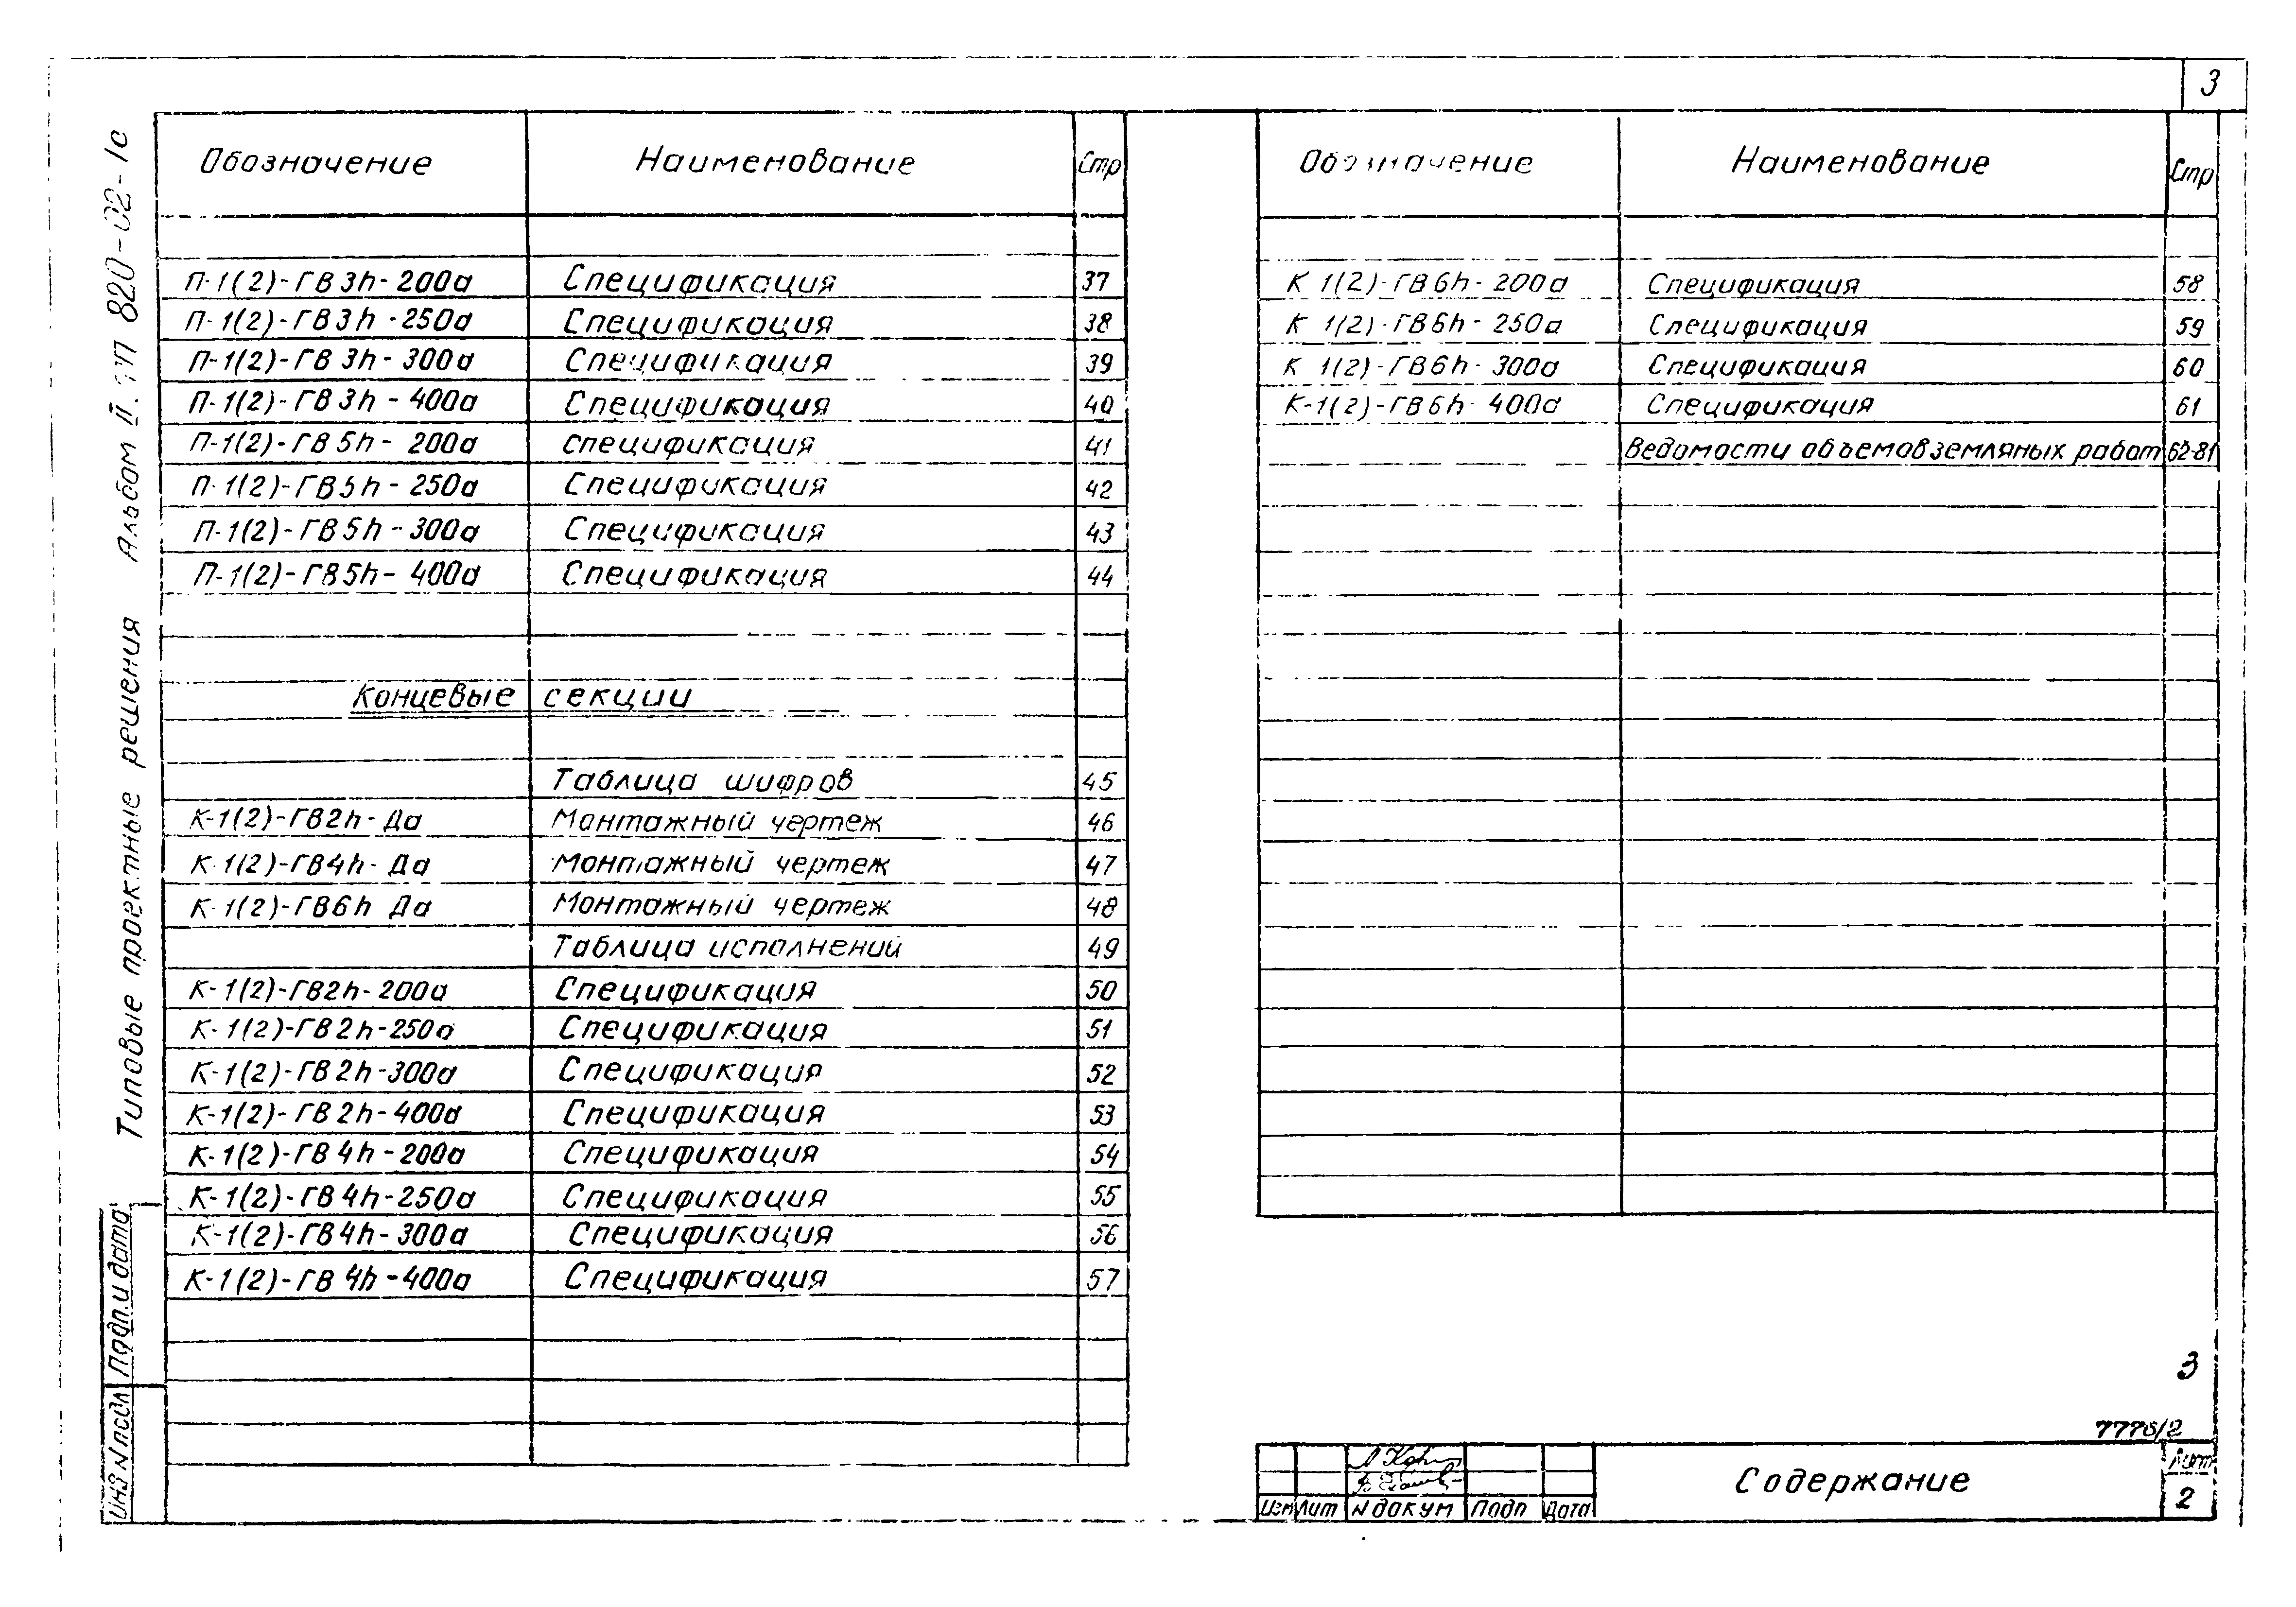 3
Типовые проектные решения Альбом II. тп 820-02-1с
Обозначение Наименование Стр
П-1(2)-ГВ3h-200а Спецификация 37
П-1(2)-ГВ3h-250а Спецификация 38
П-1(2)-ГВ3h-300а Спецификация 39
П-1(2)-ГВ3h-400а Спецификация 40
П-1(2)-ГВ5h-200а спецификация 41
П-1(2)-ГВ5h-250а Спецификация 42
П-1(2)-ГВ5h-300а Спецификация 43
П-1(2)-ГВ5h-400а Спецификация 44
Концевые секции
Таблица шифров 45
К-1(2)-ГВ2h-Да Монтажный чертеж 46
К-1(2)-ГВ4h-Да Монтажный чертеж 47
К-1(2)-ГВ6h Да Монтажный чертеж 48
Таблица исполнений 49
К-1(2)-ГВ2h-200а Спецификация 50
К-1(2)-ГВ2h-250а Спецификация 51
К-1(2)-ГВ2h-300а Спецификация 52
К-1(2)-ГВ2h-400а Спецификация 53
К-1(2)-ГВ4h-200а Спецификация 54
К-1(2)-ГВ4h-250а Спецификация 55
К-1(2)-ГВ4h-300а Спецификация 56
К-1(2)-ГВ4h-400а Спецификация 57
Обозначение Наименование Стр
К 1(2)-ГВ6h-200а Спецификация 58
К 1(2)-ГВ6h-250а Спецификация 59
К 1(2)-ГВ6h-300а Спецификация 60
К-1(2)-ГВ6h-400а Спецификация 61
Ведомости объемов земляных работ 62-81
Инв N подл Подп. и дата
3
7776/2
Изм Лит N докум Подп Дата
Содержание
Лист
2